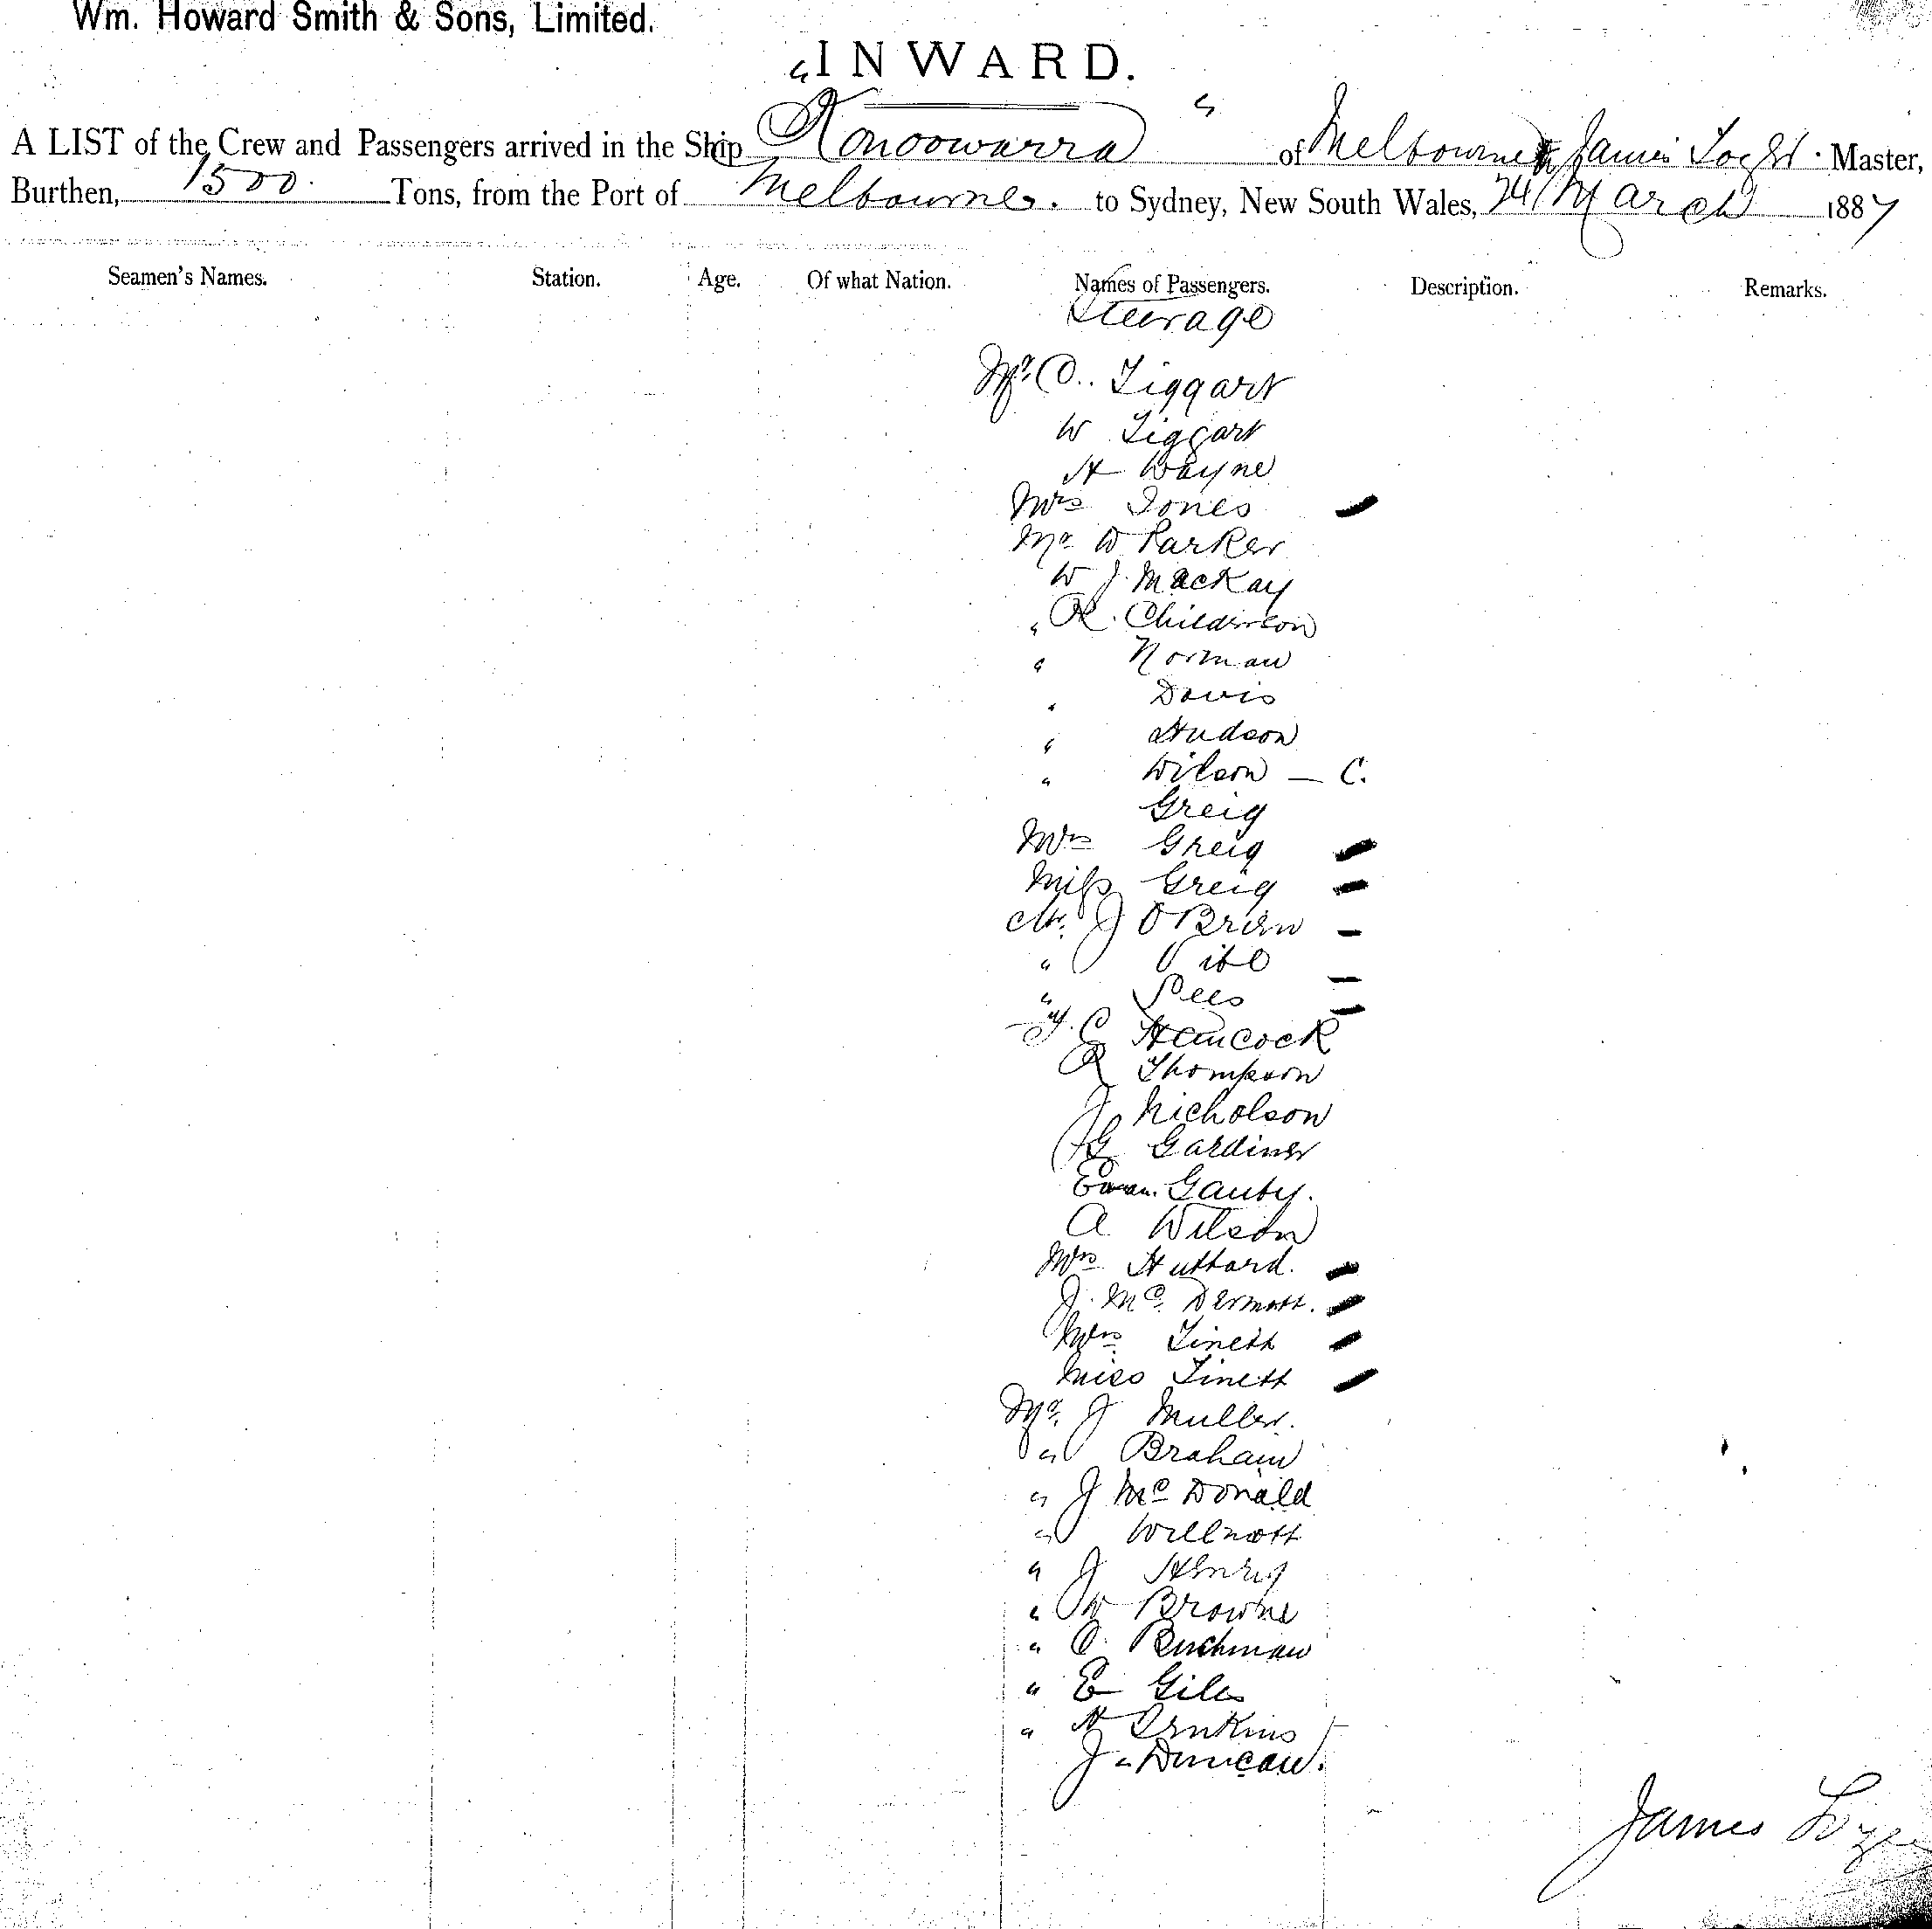 Wm. Howard Smith & Sons, Limited.
INWARD.
A LIST of the Crew and Passengers arrived in the Ship "Konoowarra" of Melbourne James Master,
Burthen, 1500 Tons, from the Port of Melbourne. to Sydney, New South Wales, 24 March 1887
Seamen's Names. Station. Age. Of what Nation. Names of Passengers. Description. Remarks.
Steerage
Mr. Tiggart
W Tiggart
H Wayne
Mrs Jones
Mr W Parker
W J. Mackay
" R. Childerson
" Norman
" Davis
" Hudson
" Wilson — C.
Greig
Mrs Greig
Miss Greig
Mr. J O'Brien
"
"
Hancock
R Thompson
J Nicholson
G Gardiner
Gauby.
A Wilson
Mrs Hubbard.
J. McDermott.
Mrs Tinett
Miss Tinett
Mr. J Muller.
" Braham
" J McDonald
" Willmott
" J Henry
" W Browne
" C. Buchman
" E Giles
" H Jenkins
J " Duncan.
James